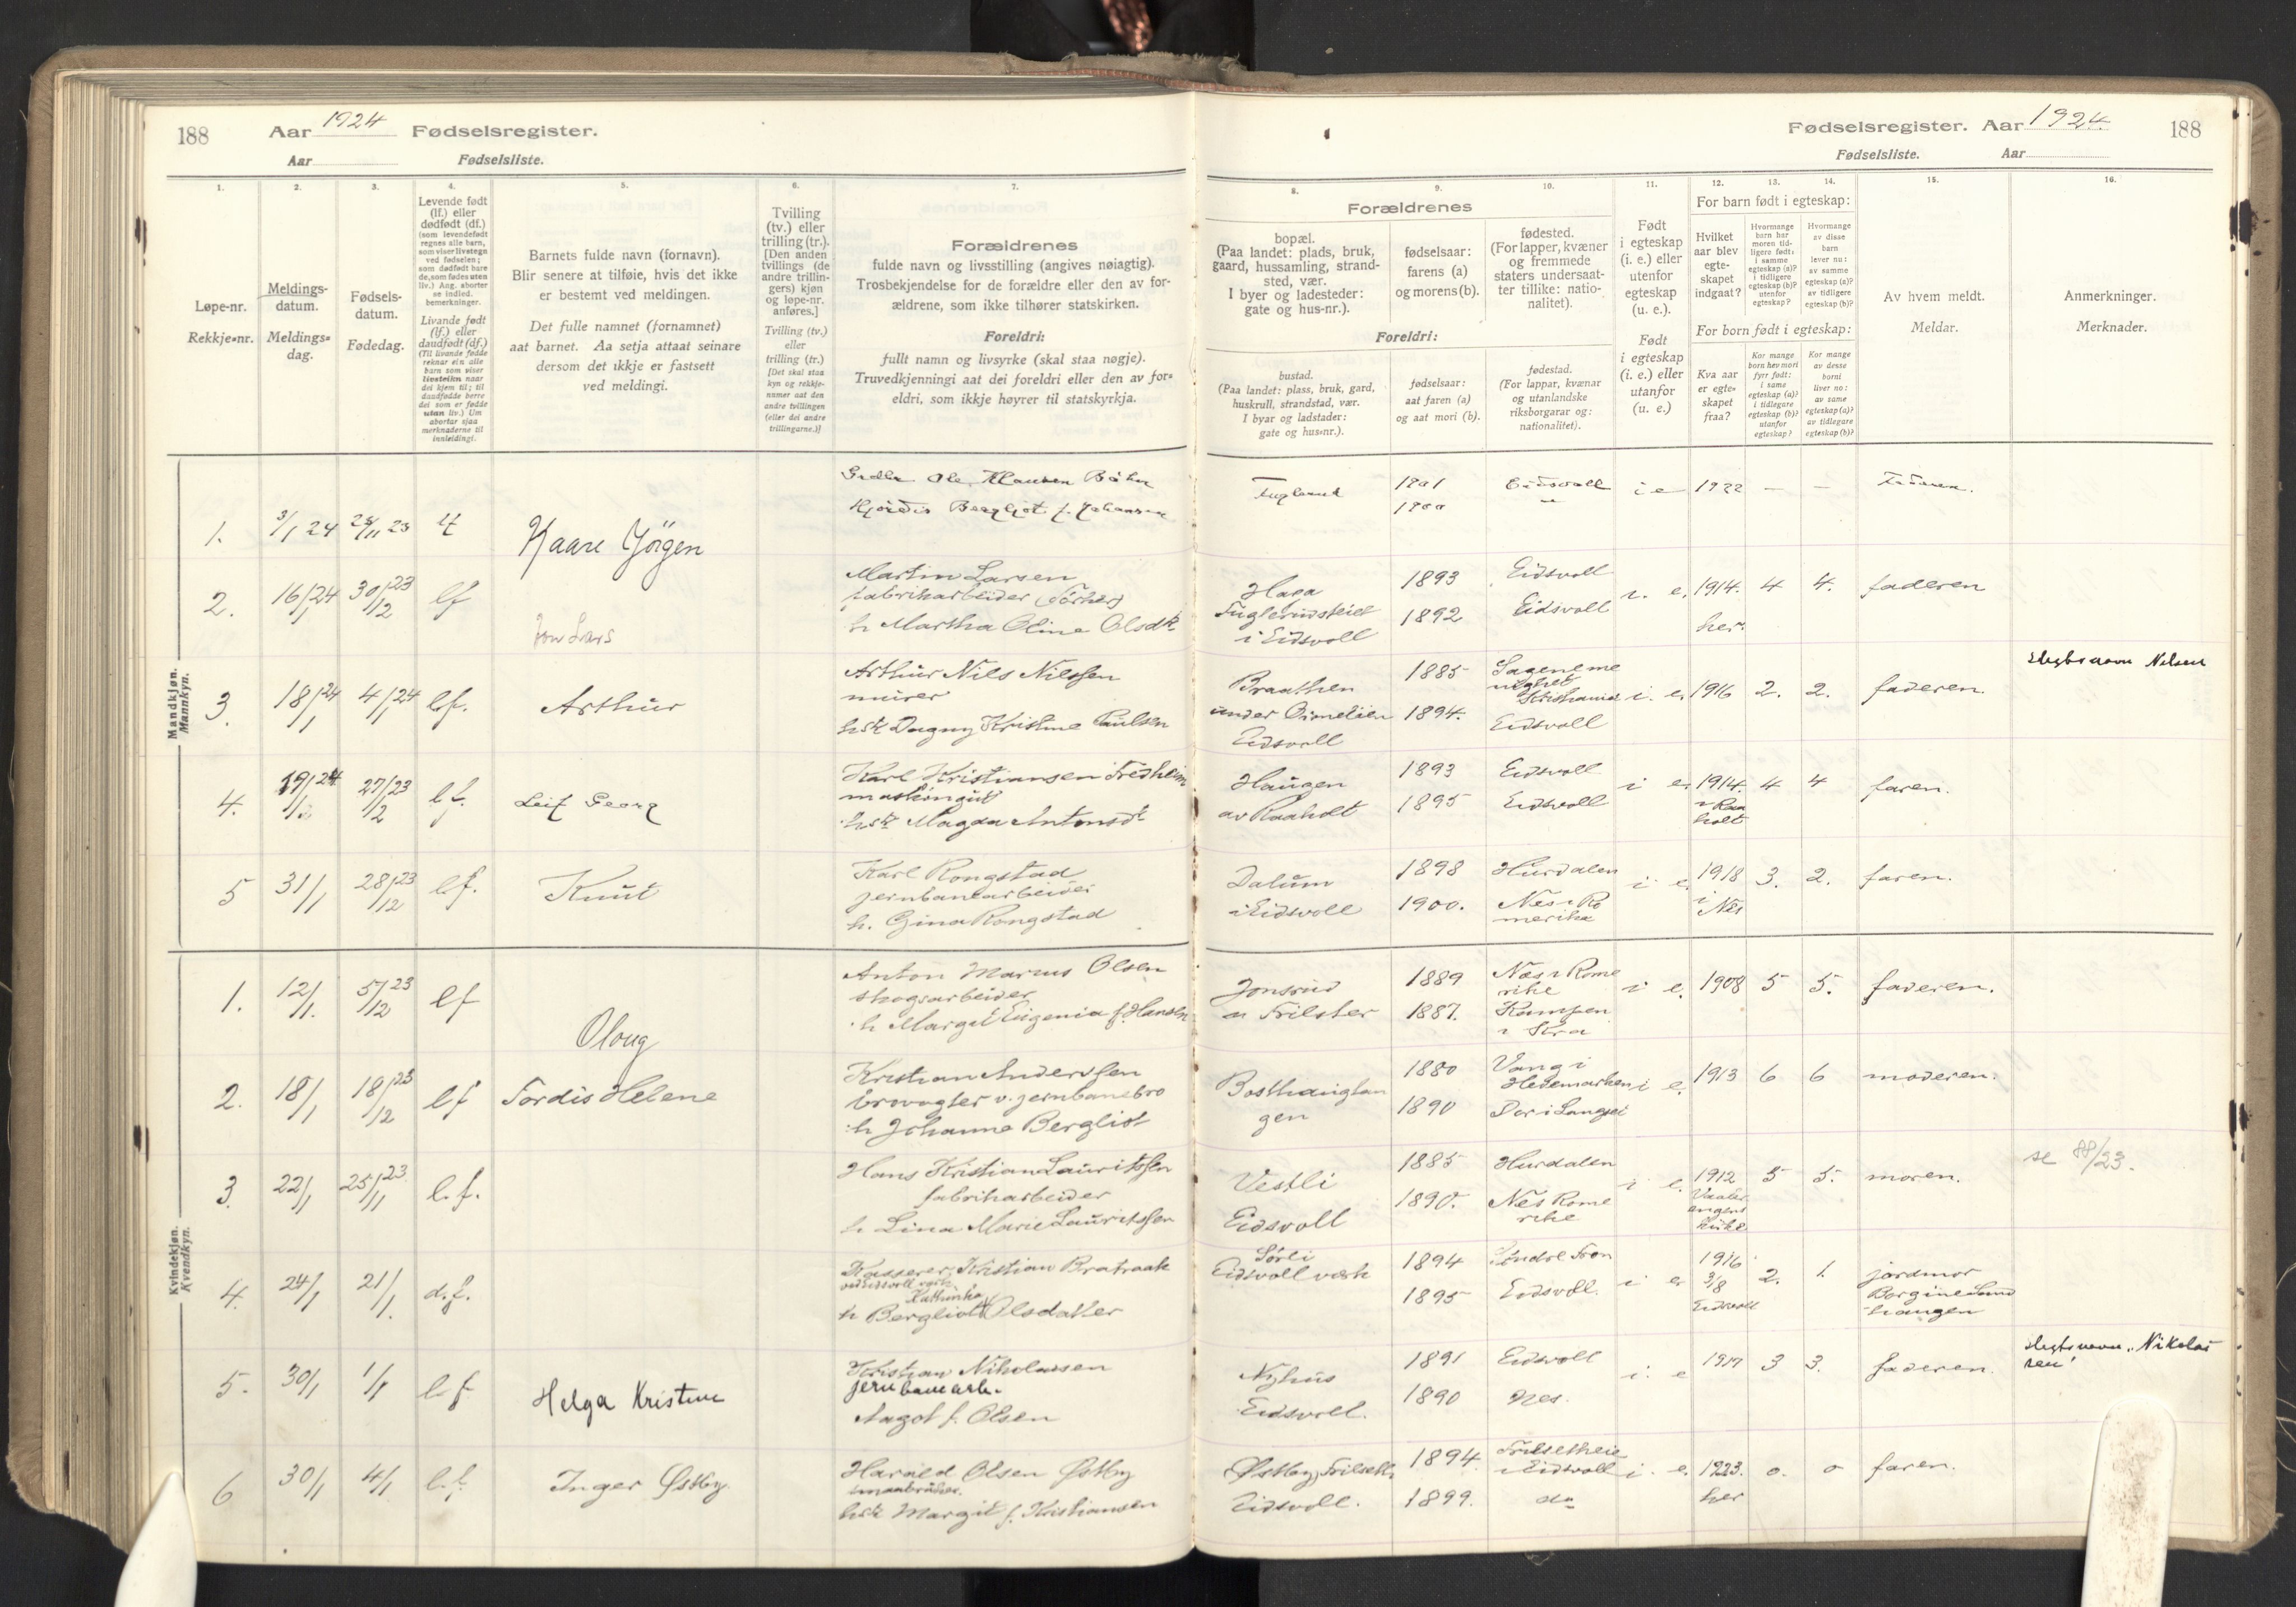 188 Aar 1924 Fødselsregister.
Aar Fødselsliste.
Fødselsregister. Aar 1924. 188
Fødselsliste. Aar
1. 2. 3. 4. 5. 6. 7.
Løpe-nr.
Rekkje-nr.
Meldings-
datum.
Meldings-
dag.
Fødsels-
datum.
Fødedag.
Levende født
(lf.) eller
dødfødt (df.)
(som levendefødt
regnes alle barn,
som viser livstegn
ved fødselen;
som dødfødt bare
de, som fødes uten
liv.) Ang. aborter
se indled.
bemerkninger.
Livande født
(lf.) eller
daudfødt (df.)
(Til livande fødde
reknar ein alle
barn som viser
livsteikn naar
dei kjem til; til
daudfødde berre
dei som er fødde
utan liv.) Um
abortar sjaa
merknaderne til
innleidingi.
Barnets fulde navn (fornavn).
Blir senere at tilføie, hvis det ikke
er bestemt ved meldingen.
Det fulle namnet (fornamnet)
aat barnet. Aa setja attaat seinare
dersom det ikkje er fastsett
ved meldingi.
Tvilling
(tv.) eller
trilling (tr.).
[Den anden
tvillings (de
andre trillin-
gers) kjøn
og løpe-nr.
anføres.]
Tvilling (tv.)
eller
trilling (tr.)
[Det skal staa
kyn og rekkje-
numer aat den
andre tvillingen
(eller dei andre
trillingarne.)]
Forældrenes
fulde navn og livsstilling (angives nøiagtig).
Trosbekjendelse for de forældre eller den av for-
ældrene, som ikke tilhører statskirken.
Foreldri:
fullt namn og livsyrke (skal staa nøgje).
Truvedkjenningi aat dei foreldri eller den av for-
eldri, som ikkje høyrer til statskyrkja.
8. 9. 10. 11. 12. 13. 14. 15. 16.
Forældrenes
bopæl.
(Paa landet: plads, bruk,
gaard, hussamling, strand-
sted, vær.
I byer og ladesteder:
gate og hus-nr.).
fødselsaar:
farens (a)
og morens (b).
fødested.
(For lapper, kvæner
og fremmede
staters undersaat-
ter tillike: natio-
nalitet).
Foreldri:
bustad.
(Paa landet: plass, bruk, gard,
huskrull, strandstad, vær.
I byar og ladstader:
gate og hus-nr.).
fødselsaar:
aat faren (a)
og aat mori (b).
fødestad.
(For lappar, kvænar
og utanlandske
riksborgarar og:
nationalitet).
Født
i egteskap
(i. e.) eller
utenfor
egteskap
(u. e.).
Født
i egteskap
(i. e.) eller
utanfor
(u. e.)
For barn født i egteskap:
Hvilket
aar blev
egte-
skapet
indgaat?
Hvormange
barn har
moren tid-
ligere født:
i samme
egteskap (a)?
i tidligere
egteskap (b)?
utenfor
egteskap?
Hvormange
av disse
barn
lever nu:
av samme
egteskap (a)?
av tidligere
egteskap (b)?
For born født i egteskap:
Kva aar
er egte-
skapet
fraa?
Kor mange
born hev mori
fyrr født:
i same
egteskap (a)?
i tidlegare
egteskap (b)?
utanfor
egteskap?
Kor mange
av desse
borni
liver no:
av same
egteskap (a)?
av tidlegare
egteskap (b)?
Av hvem meldt.
Meldar.
Anmerkninger.
Merknader.
Mandkjøn.
Mannkyn.
1. 3/1 24 lf Kaare Jörgen
Ole Klausen
Hjördis Bergljot f. Johansen
1901 Eidsvoll i e 1922 — — Faderen.
1900 "
2. 16/1 24 30/12 23 lf Jon Lars
Martin Larsen
fabrikarbeider
h Martha Oline Olsdtr
i Eidsvoll
1893 Eidsvoll i. e. 1914. 4 4. faderen
1892 Eidsvoll her.
3. 18/1 24 4/1 24 lf. Arthur
Arthur Nils Nilssen
murer
hstr Dagny Kristine Paulsen
Braathen
under
Eidsvoll
1885 Sagene me
nighet
Kristiania i. e. 1916 2. 2. faderen. Slegtsnavn Nilsen
1894. Eidsvoll
4. 19/1 24 27/12 23 l.f. Leif Georg
Karl Kristiansen Fredheim
hstr Magda Antonsdt
Haugen
av Raaholt
1893 Eidsvoll i e. 1914. 4 4 faren.
1895 Eidsvoll i Raa
holt
5 31/1 28/12 23 l.f. Knut
Karl Rongstad
jernbanearbeider
h. Gina Rongstad
Dalum
i Eidsvoll
1898 Hurdalen i e. 1918 3. 2. faren.
1900. Nes i Ro
merike i
Nes
Kvindekjøn.
Kvendkyn.
1. 12/1. 5/12 23 lf Oloug
Anton Marius Olsen
skogsarbeider
h Margit Eugenia f. Hansen
Jonsrud
1889 Nes i Rome
rike i e. 1908 5 5. faderen.
1887. Kampen
i Kra
2. 18/1 18/12 23 lf Tordis Helene
Kristian Anderssen
brovogter v. jernbanebro
h Johanne Bergliot
Bosthaugtan
gen
1880 Vang i
Hedemarken i e. 1913 6 6 moderen.
1890 Dor i Langset
3. 22/1 25/11 23 l.f.
Hans Kristian Lauritssen
fabrikarbeider
h Lina Marie Lauritssen
Vestli
Eidsvoll
1885 Hurdalen i e. 1912 5 5. moren. se 88/23.
1890. Nes Rome
rike Vaaler
engens
kirke
4. 24/1 21/1. d.f.
Kasserer Kristian Bratraak
ved Eidsvoll verk.
Kathinka
h Bergliot Olsdatter
Sørli
Eidsvoll verk
1894 Søndre Fron i e 1916 2. 1. jordmor
1895 Eidsvoll. 3/8
Eidsvoll Borgine
haugen
5. 30/1 1/1 l.f. Helga Kristine
Kristian Nikolaisen
jernbanearb.
Aagot f. Olsen
Nyhus
Eidsvoll.
1891 Eidsvoll i. e 1917 3 3. faderen. Slegtsnavn "Nikolai
sen"
1890 Nes.
6 30/1 4/1 l.f. Inger Østby.
Harald Olsen Østby
smaabruker.
hstr Margit f. Kristiansen
Østby, Frilseth
Eidsvoll.
1894. i Eidsvoll i. e. 1923. 0. 0 faren.
1899. do her